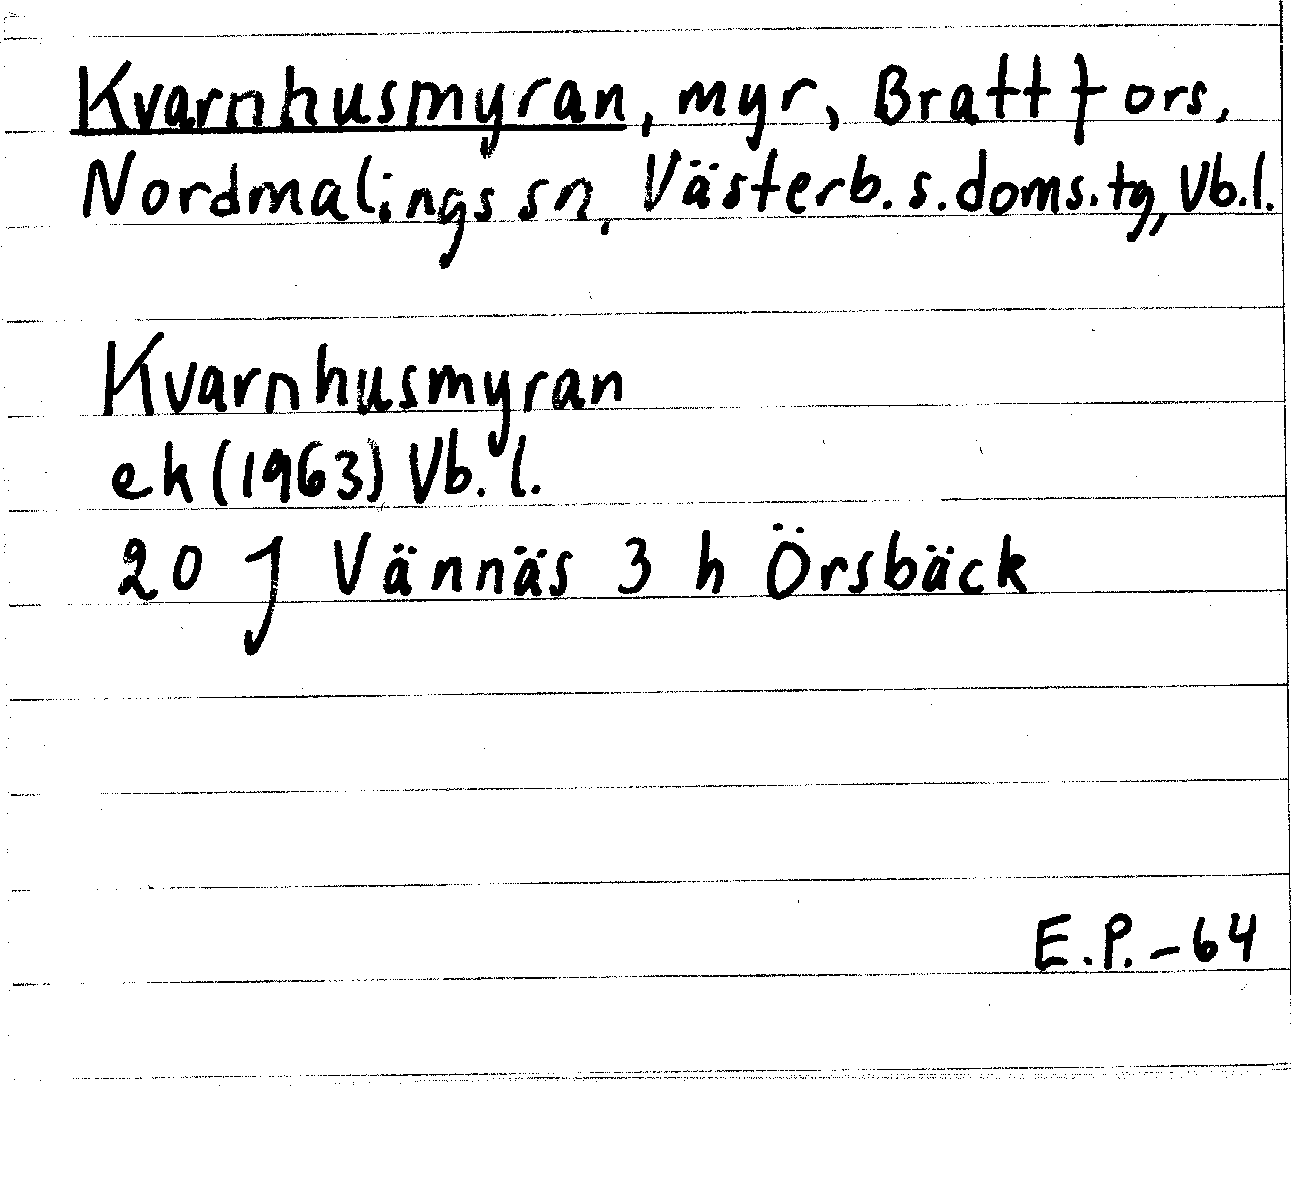 Kvarnhusmyran, myr, Brattfors,
Nordmalings sn, Västerb.s.doms.tg, Vb.l.
Kvarnhusmyran
ek (1963) Vb. l.
20 J Vännäs 3 h Örsbäck
E.P.-64